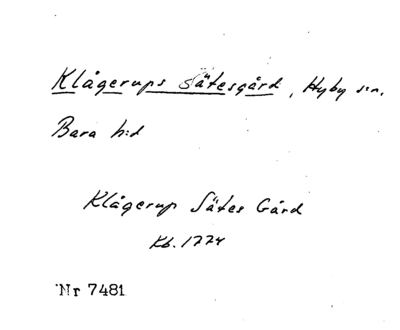 Klågerups Sätesgård, Hyby s:n.
Bara h:d
Klågerup Sätes Gård
Kb. 1774
Nr 7481